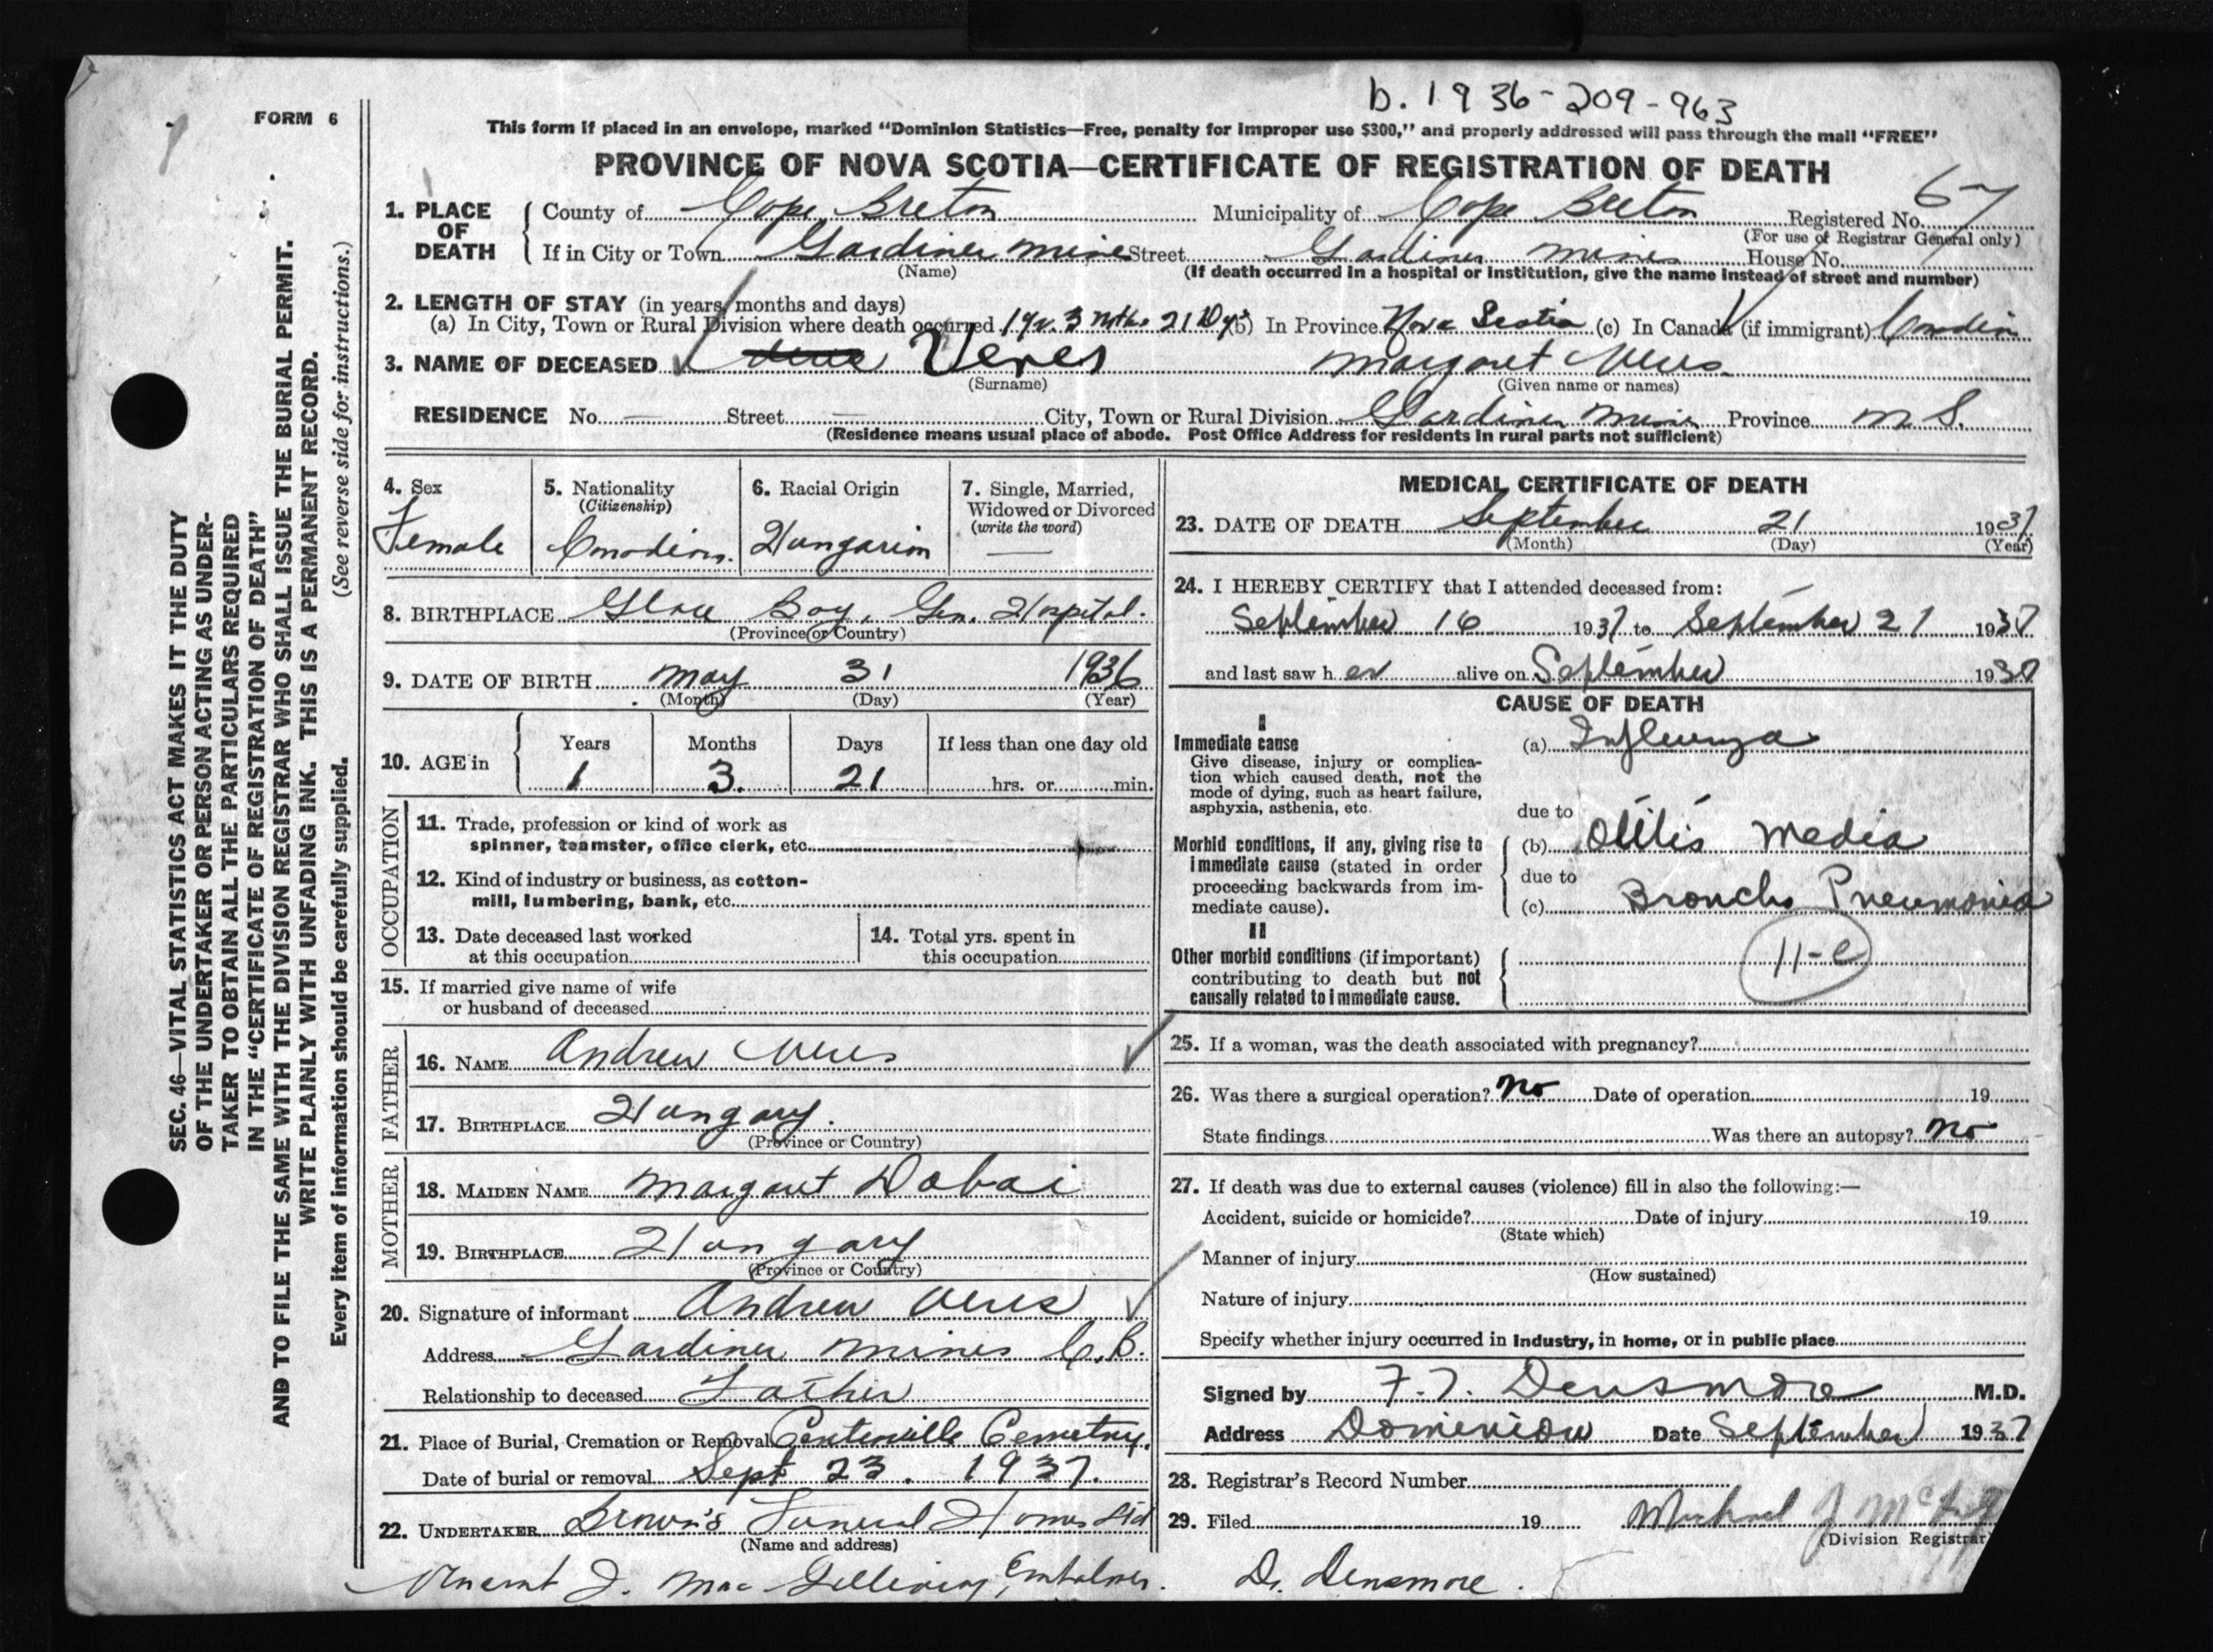 b. 1936-209-963
FORM 6
This form if placed in an envelope, marked "Dominion Statistics—Free, penalty for improper use $300," and properly addressed will pass through the mail "FREE"
PROVINCE OF NOVA SCOTIA—CERTIFICATE OF REGISTRATION OF DEATH
1. PLACE OF DEATH County of Cape Breton Municipality of Cape Breton Registered No. 67
(For use of Registrar General only)
If in City or Town Gardiner Mines Street Gardiner Mines House No.
(Name) (If death occurred in a hospital or institution, give the name instead of street and number)
2. LENGTH OF STAY (in years, months and days)
(a) In City, Town or Rural Division where death occurred 1 yr. 3 mths 21 Dys (b) In Province Nova Scotia (c) In Canada (if immigrant) Canadian
3. NAME OF DECEASED Veres Margaret Veres
(Surname) (Given name or names)
RESIDENCE No. — Street — City, Town or Rural Division Gardiner Mines Province N S.
(Residence means usual place of abode. Post Office Address for residents in rural parts not sufficient)
SEC. 46—VITAL STATISTICS ACT MAKES IT THE DUTY
OF THE UNDERTAKER OR PERSON ACTING AS UNDER-
TAKER TO OBTAIN ALL THE PARTICULARS REQUIRED
IN THE "CERTIFICATE OF REGISTRATION OF DEATH"
AND TO FILE THE SAME WITH THE DIVISION REGISTRAR WHO SHALL ISSUE THE BURIAL PERMIT.
WRITE PLAINLY WITH UNFADING INK. THIS IS A PERMANENT RECORD.
Every item of information should be carefully supplied. (See reverse side for instructions.)
4. Sex
Female
5. Nationality
(Citizenship)
Canadian.
6. Racial Origin
Hungarian
7. Single, Married,
Widowed or Divorced
(write the word)
—
8. BIRTHPLACE Glace Bay, Gen. Hospital.
(Province or Country)
9. DATE OF BIRTH May 31 1936
(Month) (Day) (Year)
10. AGE in Years Months Days If less than one day old
1 3. 21 hrs. or min.
OCCUPATION
11. Trade, profession or kind of work as
spinner, teamster, office clerk, etc.
12. Kind of industry or business, as cotton-
mill, lumbering, bank, etc.
13. Date deceased last worked
at this occupation
14. Total yrs. spent in
this occupation
15. If married give name of wife
or husband of deceased
FATHER
16. NAME Andrew Veres
17. BIRTHPLACE Hungary.
(Province or Country)
MOTHER
18. MAIDEN NAME Margaret Dobai
19. BIRTHPLACE Hungary
(Province or Country)
20. Signature of informant Andrew Veres
Address Gardiner Mines C.B.
Relationship to deceased Father
21. Place of Burial, Cremation or Removal Centerville Cemetry.
Date of burial or removal Sept 23. 1937.
22. UNDERTAKER Brown's Funeral Homes Ltd
(Name and address)
Vincent J. Mac Gillivray, Embalmer.
MEDICAL CERTIFICATE OF DEATH
23. DATE OF DEATH September 21 1937
(Month) (Day) (Year)
24. I HEREBY CERTIFY that I attended deceased from:
September 16 1937 to September 21 1937
and last saw her alive on September 1937
CAUSE OF DEATH
I
Immediate cause
Give disease, injury or complica-
tion which caused death, not the
mode of dying, such as heart failure,
asphyxia, asthenia, etc.
(a) Influenza
due to
Morbid conditions, if any, giving rise to
immediate cause (stated in order
proceeding backwards from im-
mediate cause).
(b) Otitis Media
due to
(c) Broncho Pneumonia
II
Other morbid conditions (if important)
contributing to death but not
causally related to immediate cause.
11-e
25. If a woman, was the death associated with pregnancy?
26. Was there a surgical operation? No Date of operation 19
State findings Was there an autopsy? No
27. If death was due to external causes (violence) fill in also the following:—
Accident, suicide or homicide? Date of injury 19
(State which)
Manner of injury
(How sustained)
Nature of injury
Specify whether injury occurred in industry, in home, or in public place
Signed by F. T. Densmore M.D.
Address Dominion Date September 1937
28. Registrar's Record Number
29. Filed 19 Michael J
(Division Registrar)
Dr. Densmore.